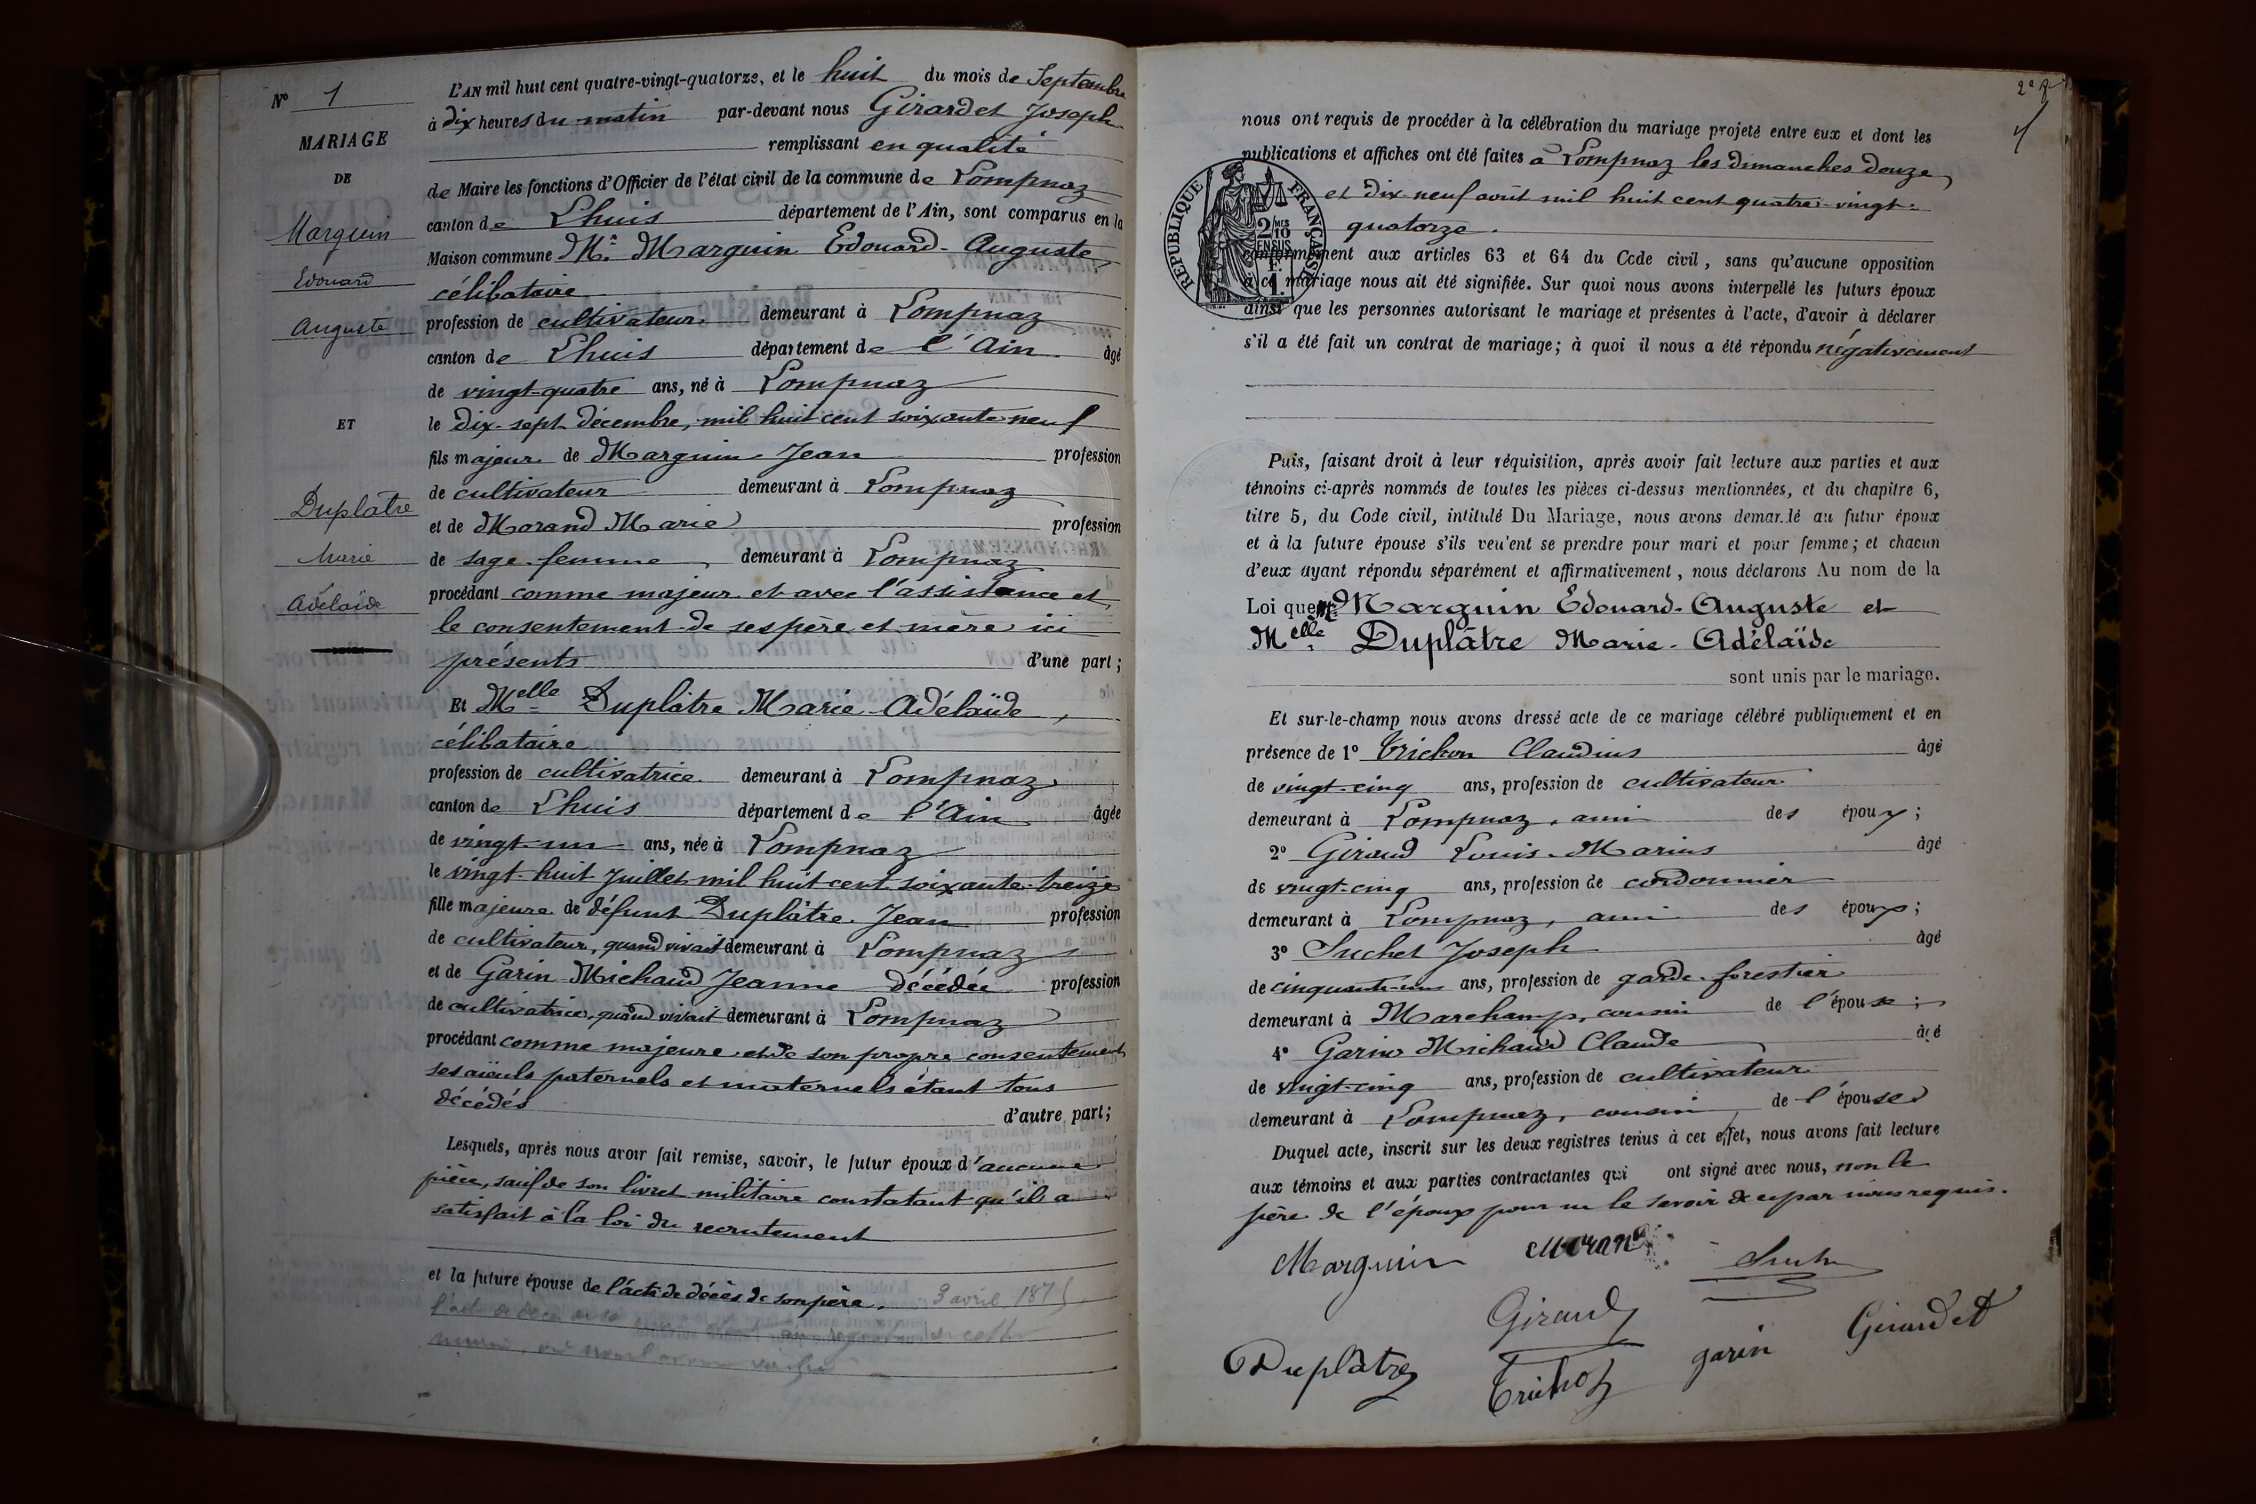 N° 1
MARIAGE
DE
Marguin
Edouard
Auguste
ET
Duplâtre
Marie
Adélaïde
L'AN mil huit cent quatre-vingt-quatorze, et le huit du mois de Septembre
à dix heures du matin par-devant nous Girardet Joseph
remplissant en qualité
de Maire les fonctions d'Officier de l'état civil de la commune de Lompnaz
canton de Lhuis département de l'Ain, sont comparus en la
Maison commune Mr. Marguin Edouard-Auguste,
célibataire
profession de cultivateur demeurant à Lompnaz
canton de Lhuis département de l'Ain âgé
de vingt-quatre ans, né à Lompnaz
le dix-sept décembre, mil huit cent soixante neuf
fils majeur de Marguin Jean profession
de cultivateur demeurant à Lompnaz
et de Morand Marie profession
de sage-femme, demeurant à Lompnaz
procédant comme majeur et avec l'assistance et
le consentement de ses père et mère ici
présents d'une part;
Et Melle Duplâtre Marie-Adélaïde,
célibataire
profession de cultivatrice demeurant à Lompnaz
canton de Lhuis département de l'Ain âgée
de vingt-un ans, née à Lompnaz
le vingt-huit Juillet mil huit cent soixante-treize
fille majeure de défunt Duplâtre Jean profession
de cultivateur, quand vivait demeurant à Lompnaz
et de Garin Michaud Jeanne décédée profession
de cultivatrice, quand vivait demeurant à Lompnaz
procédant comme majeure et de son propre consentement
ses aïeuls paternels et maternels étant tous
décédés d'autre part;
Lesquels, après nous avoir fait remise, savoir, le futur époux d'aucune
pièce, sauf de son livret militaire constatant qu'il a
satisfait à la loi du recrutement
et la future épouse de l'acte de décès de son père. 3 avril 187
l'acte de décès de sa
nous ont requis de procéder à la célébration du mariage projeté entre eux et dont les
publications et affiches ont été faites à Lompnaz les dimanches douze
et dix-neuf août mil huit cent quatre-vingt-
quatorze.
REPUBLIQUE FRANÇAISE
2/10 MES
EN SUS
1 F.
conformément aux articles 63 et 64 du Code civil, sans qu'aucune opposition
à ce mariage nous ait été signifiée. Sur quoi nous avons interpellé les futurs époux
ainsi que les personnes autorisant le mariage et présentes à l'acte, d'avoir à déclarer
s'il a été fait un contrat de mariage; à quoi il nous a été répondu négativement
Puis, faisant droit à leur réquisition, après avoir fait lecture aux parties et aux
témoins ci-après nommés de toutes les pièces ci-dessus mentionnées, et du chapitre 6,
titre 5, du Code civil, intitulé Du Mariage, nous avons demandé au futur époux
et à la future épouse s'ils veulent se prendre pour mari et pour femme; et chacun
d'eux ayant répondu séparément et affirmativement, nous déclarons Au nom de la
Loi que Mr. Marguin Edouard-Auguste et
Melle. Duplâtre Marie-Adélaïde
sont unis par le mariage.
Et sur-le-champ nous avons dressé acte de ce mariage célébré publiquement et en
présence de 1° Trichon Claudius âgé
de vingt-cinq ans, profession de cultivateur
demeurant à Lompnaz, ami des époux;
2° Giraud Louis-Marius âgé
de vingt-cinq ans, profession de cordonnier
demeurant à Lompnaz, ami des époux;
3° Suchet Joseph âgé
de cinquante-un ans, profession de garde-forestier
demeurant à Marchamp, cousin de l'épouse;
4° Garin Michaud Claude âgé
de vingt-cinq ans, profession de cultivateur
demeurant à Lompnaz, cousin de l'épouse
Duquel acte, inscrit sur les deux registres tenus à cet effet, nous avons fait lecture
aux témoins et aux parties contractantes qui ont signé avec nous, non le
père de l'époux pour ne le savoir de ce par nous requis.
Marguin Moran
Giraud
Girardet
Duplâtre Garin